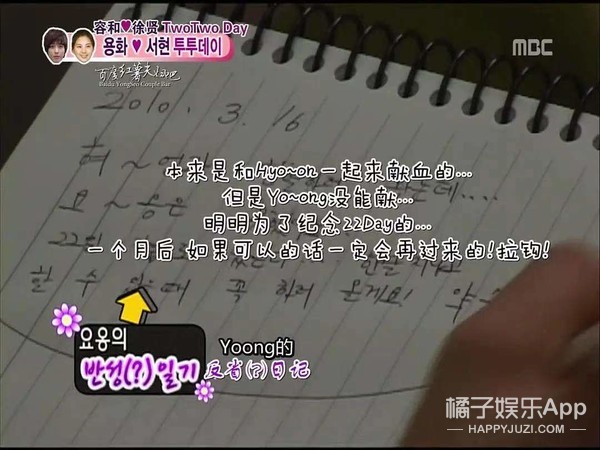 容和♥徐贤 TwoTwo Day
용화 ♥ 서현 투투데이
MBC
百度红薯夫妇吧
Baidu YongSeo Couple Bar
2010. 3. 16
혀 ~
는데....
本来是和Hyo~on一起来献血的...
요 ~ 옹은
但是Yo~ong没能献...
明明为了纪念22Day的...
22일
一个月后 如果可以的话一定会再过来的!拉钩!
할 수 때 꼭 하러 올게요!
요옹의
반성(?)일기
Yoong的
反省(?)日记
橘子娱乐App
HAPPYJUZI.COM